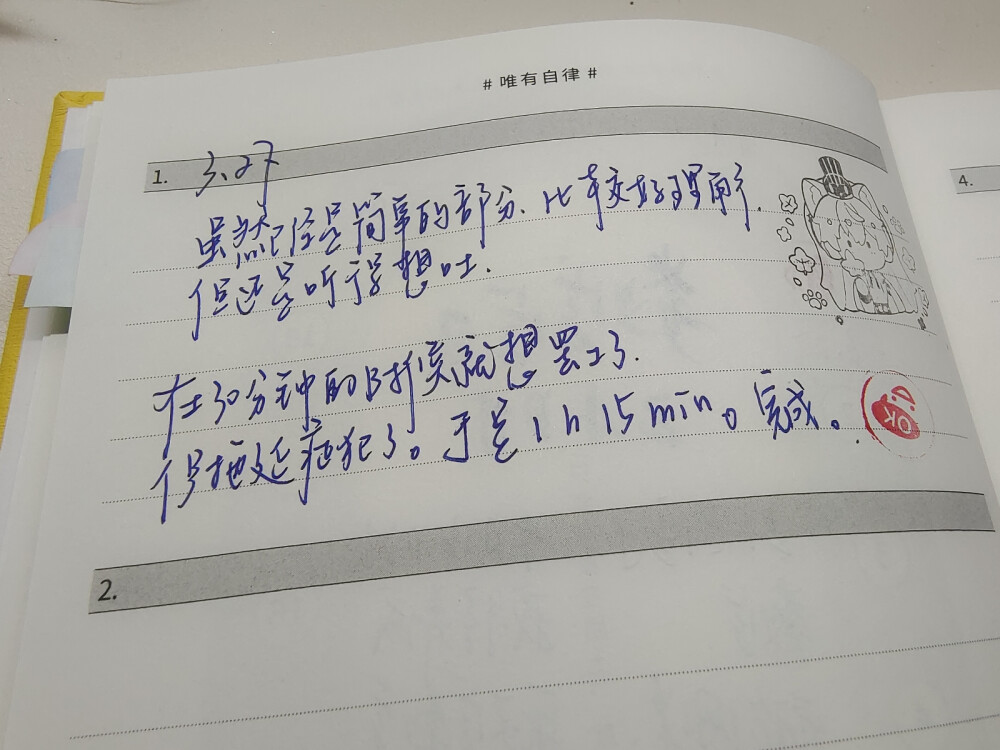 # 唯有自律 #
1. 3.27
虽然已经是简单的部分、比较好理解.
但还是听得想吐.
在30分钟的时候就想罢工了.
但拖延症犯了。于是1h15min。完成。
OK
2.
4.